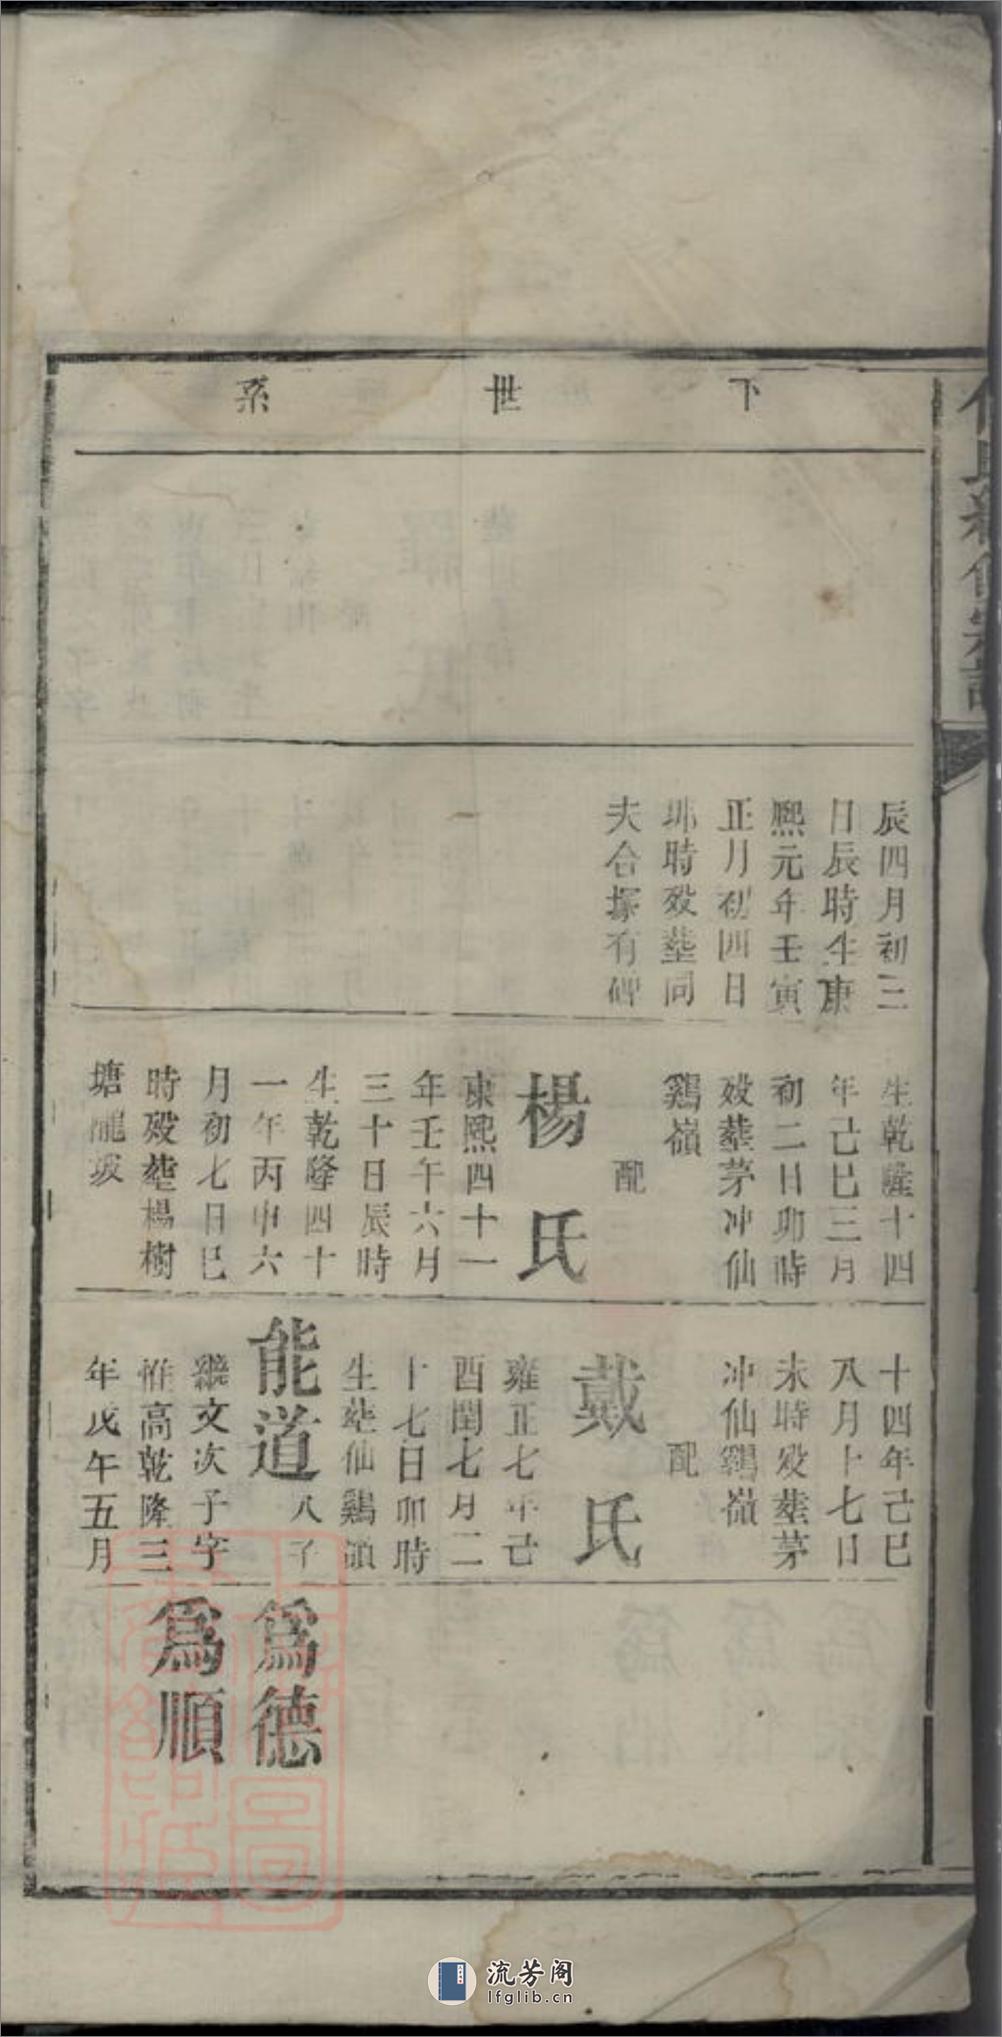 下世系
辰四月初三
日辰時生康
熙元年壬寅
正月初四日
卯時殁塟同
夫合塚有碑
生乾隆十四
年己巳三月
初二日卯時
殁塟茅冲仙
鷄嶺
配
楊氏
康熙四十一
年壬午六月
三十日辰時
生乾隆四十
一年丙申六
月初七日巳
時殁塟楊樹
塘
十四年己巳
八月十七日
未時殁塟茅
冲仙鷄嶺
配
戴氏
雍正七年己
酉閏七月二
十七日卯時
生塟仙鷄嶺
能道
八子
繼文次子字
惟高乾隆三
年戊午五月
為德
為順
氏續修
流芳阁
lfglib.cn